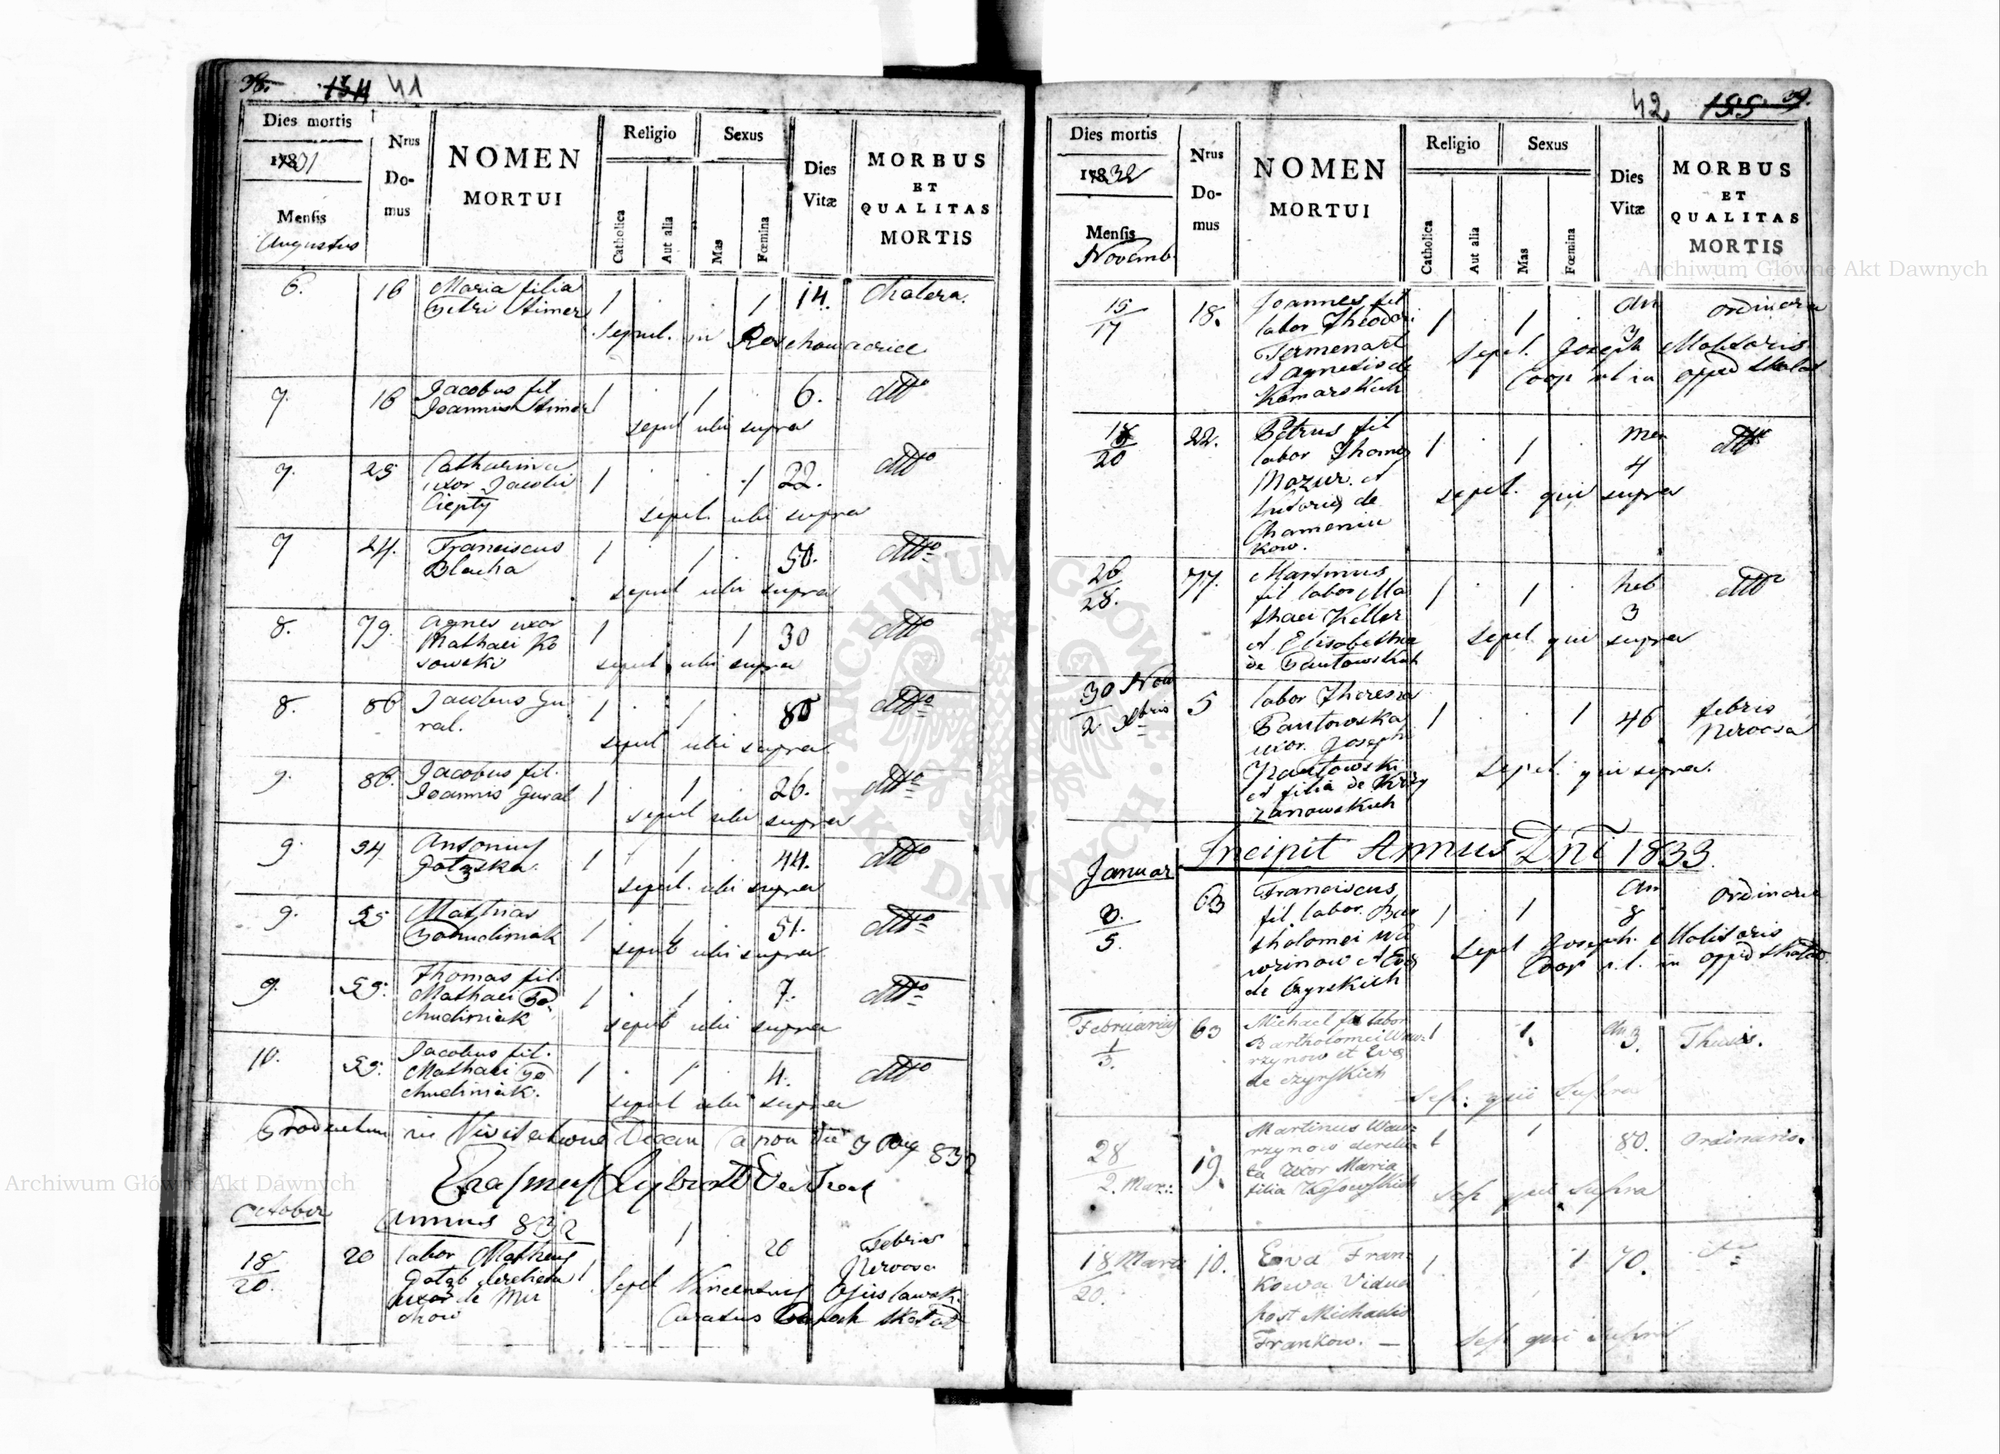 38. 134 41
Dies mortis
1831
Mensis
Augustus
Nrus
Do-
mus
NOMEN
MORTUI
Religio
Catholica
Aut alia
Sexus
Mas
Fœmina
Dies
Vitæ
MORBUS
ET
QUALITAS
MORTIS
6. 16 Maria filia
Petri 1 . . 1 14. Cholera.
sepul. in
7. 16 Jacobus fil.
Joannis 1 . 1 . 6. dtto
sepul ubi supra
7. 25 Catharina
uxor Jacobi
Ciepły 1 . . 1 22. dtto
sepul. ubi supra
7 24. Franciscus
Blacha 1 . 1 . 50. dtto
sepul ubi supra
8. 79. Agnes uxor
Mathaei Ko
sowski 1 . . 1 30 dtto
sepul ubi supra
8. 86 Jacobus Gu
ral. 1 . 1 . 80 dtto
sepul ubi supra
9. 86. Jacobus fil.
Joannis Gural 1 . 1 . 26. dtto
sepul ubi supra
9 94 Antonius
1 . 1 . 44. dtto
sepul. ubi supra
9. 55 Mathias
Pochudiniak 1 . 1 . 51. dtto
sepul ubi supra
9. 59. Thomas fil.
Mathaei Po
chudiniak 1 . 1 . 7. dtto
sepul ubi supra
10. 59. Jacobus fil.
Mathaei Po
chudiniak. 1 . 1 . 4. dtto
sepul ubi supra
Productum in Visitatione Decan die 9 832
Erasmus
October Annus 832
18/20. 20 labor Matheus
uxor de Mu
chow 1 . 1 . 26 Febris
Nervosa
Sepel Vincentius
Curatus
42 155 39.
Dies mortis
1832
Mensis
Novemb.
Nrus
Do-
mus
NOMEN
MORTUI
Religio
Catholica
Aut alia
Sexus
Mas
Fœmina
Dies
Vitæ
MORBUS
ET
QUALITAS
MORTIS
15/17 18. Joannes fil
labor Theodori
et Agnetis de
Komarskich 1 . 1 . An
3 ordinaria
Sepel. Joseph Molitoris
Coop in oppid Skalat
18/20 22. Petrus fil
labor Thomæ
Mazur et
de
Chomeniu
kow. 1 . 1 . Men
4 dtto
sepel. qui supra
26/28. 77. Martinus
fil labor Ma
thaei Keller
et Elisabethæ
de Pautowskich 1 . 1 . heb
3 dtto
sepel qui supra
30 Nov
2 Xbris 5 labor Theresia
Pautowska
uxor Josephi
Pautowski
et filia de Krzy
żanowskich 1 . . 1 46 febris
Nervosa
Sepel. qui supra.
Incipit Annus Dni 1833.
Januar
3./5. 63 Franciscus
fil labor. Bar
tholomei Wa
wrzinow et Evæ
de Czyrskich 1 . 1 An
8 Ordinaria
Sepel Joseph. Molitoris
Coop in oppid Skalat
Februarius
1/3. 63 Michael fil labor
Bartholomei Waw-
rzynow et Eva
de Czyrskich 1 1. An 3. Thisis.
Sep: qui Supra
28
2. Mar: 19. Martinus Waw-
rzynow derelic-
ta Uxor Maria
filia Kosowskich 1 1 80. Ordinaris.
Sep qui Supra
18 Marti
20. 10. Eva Fran-
kowa Vidua
post Michaelis
Frankow. — 1. 1 70.
Sep qui Supra
ARCHIWUM GŁÓWNE AKT DAWNYCH
Archiwum Główne Akt Dawnych
Archiwum Główne Akt Dawnych